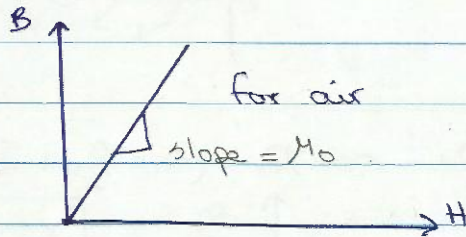 B
for air
slope = μo
H